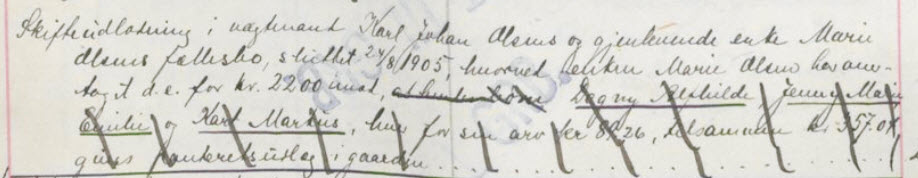 Skifteudlodning i vægtmand Karl Johan Olsens og gjenlevende enke Marie
Olsens fællesbo, sluttet 24/8 1905, hvorved enken Marie Olsen har over-
taget d. e. for kr. 2200 mot, at hendes børn Dagny Alfhilde, Jenny Marie
Emilie og Karl Markus, hver for sin arv kr 89.26, tilsammen kr. 357.04,
gives panteretsutlæg i gaarden